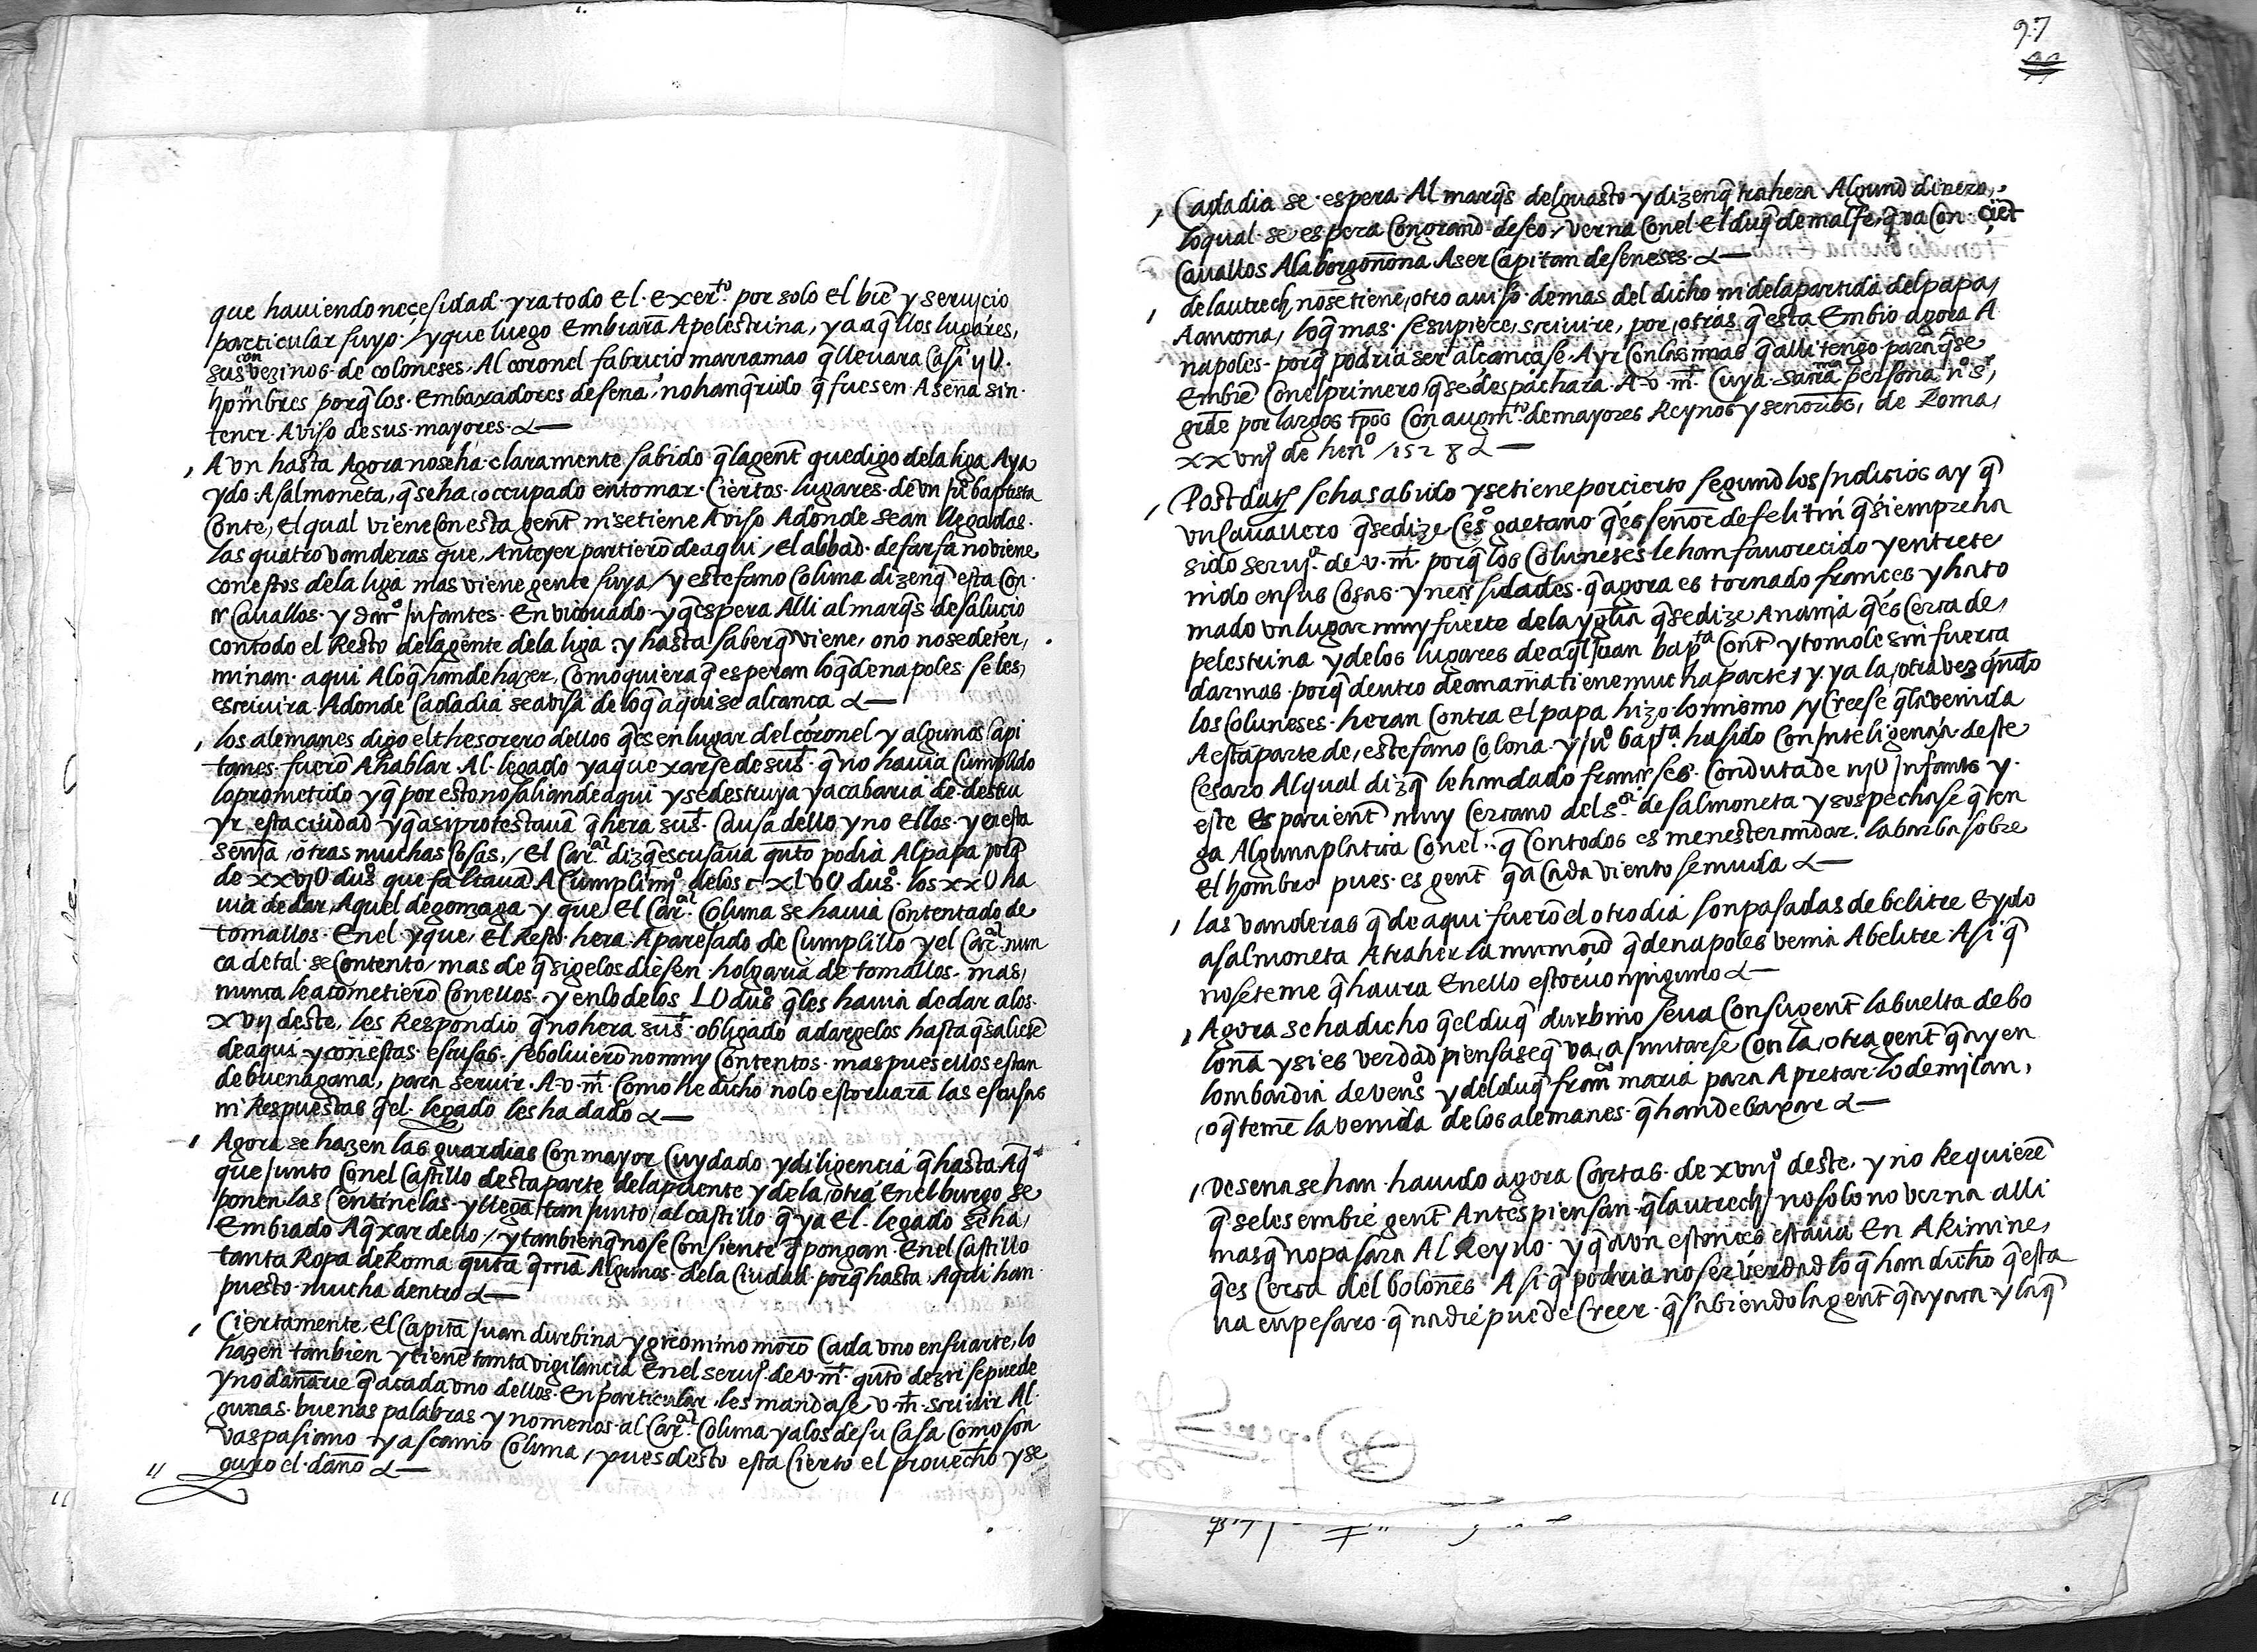 que haviendo neçesidad yra todo el exerto por solo el biē y seruiçio
particular suyo / y que luego embiarā a pelestrina, y a aq̄llos lugares,
sus con vezinos de coloneses, al coronel fabriçio marramao q̄ lleuara casi ij U.
hombres porq̄ los embaxadores de sena, no han q̄rido q̄ fuesen a sena sin
tener aviso de sus mayores
Avn hasta agora no se ha claramente sabido q̄ la gent̄ que digo de la liga aya
ydo a salmoneta, q̄ se ha occupado en tomar çiertos lugares de vn juº baptista
Conte, el qual viene con esta gent̄ ni se tiene aviso adonde sean llegadas
las quatro vanderas que anteyer partierō de aqui / el abbad de farfa no viene
con estos de la liga mas viene gente suya / y estefano Coluna dizen q̄ esta con
cauallos y infantes en vicouado y q̄ espera alli al marq̄s de saluçio
con todo el resto de la gente de la liga y hasta saber q̄ viene, o no no se deter,
minan aqui a lo q̄ han de hazer, como quiera q̄ esperan lo q̄ de napoles se les,
escriuira adonde cada dia se avisa de lo q̄ aqui se alcança
los alemanes digo el thesorero dellos q̄ es en lugar del coronel y algunos capi
tanes fuerō a hablar al legado y a quexarse de su sᵗ q̄ no havia cumplido
lo prometido y q̄ por esto no salian de aqui y se destruya y acabaria de destru
yr esta ciudad y q̄ asi protestauā q̄ hera su sᵗ causa dello y no ellos y en esta
sentēçia otras muchas cosas, / el Carᵃˡ diz q̄ escusaua quāto podia al papa porq̄
de xxvij U dusº que faltauā a cumplimiº de los c xlv U dusº los xx U ha
uia de dar aquel de gonzaga y que el Carᵃˡ Coluna se havia contentado de
tomallos en el y que el resto hera aparejado de cumplillo y el Carᵃˡ nun
ca de tal se contento / mas de q̄ si gelos diesen holgaria de tomallos mas,
nunca le acometierō con ellos y en lo de los L U dusº q̄ les havia de dar a los
xvij deste, les respondio q̄ no hera su sᵗ obligado a dargelos hasta q̄ saliesē
de aqui y con estas escusas se boluierō no muy contentos mas pues ellos estan
de buena gana, para seruir a v. mᵗ como he dicho no lo estoruarā las escusas
ni respuestas q̄ el legado les ha dado
Agora se hazen las guardias con mayor cuydado y diligençia q̄ hasta aq̄
que junto con el castillo desta parte de la puente y de la otra en el burgo se
ponen las sentinelas y llegā tan junto al castillo q̄ ya el legado se ha,
embiado a q̄xar dello / y tambien q̄ no se consiente q̄ pongan en el castillo
tanta ropa de Roma quāta q̄rriā algunos de la ciudad porq̄ hasta aqui han
puesto mucha dentro
Ciertamente el capitā Juan durbina y gironimo morō cada vno en su arte, lo
hazen tambien y tienē tanta vigilançia en el seruiº de v. mᵗ quāto dezir se puede
y no dañarie q̄ a cada vno dellos en particular les mandase v. mᵗ screuir al
gunas buenas palabras y no menos al Carᵃˡ Coluna y a los de su casa como son
vaspasiano y ascanio Coluna / pues desto esta cierto el prouecho y se
guro el daño
97
Cada dia se espera al marq̄s del guasto y dizen q̄ trahera algund dinero,
lo qual se espera con grand deseo, verna con el el duq̄ de malfe, q̄ va con çient
cauallos a la borgoñona a ser capitan de seneses
de lautrech, no se tiene otro auiso demas del dicho ni de la partida del papa,
a ancona, lo q̄ mas se supiere, screuire, por otras q̄ esta embio agora a
napoles porq̄ podria ser alcançase a yr con las mias q̄ alli tengo para q̄ se
embiē con el primero q̄ se despachara a v. mᵗ cuya sacra persona nº sʳ,
gūde por largos tpōs con augmᵗº de mayores Reynos y señorios, de Roma,
xxviijº de henº 1528
Post data se ha sabido y se tiene por cierto segund los indicios ay q̄
vn cauallero q̄ se dize çesº gaetano q̄ es señor de q̄ siempre ha
sido seruiᵒʳ de v. mᵗ porq̄ los Coluneses le han fauorecido y entrete
nido en sus cosas y neçessidades q̄ agora es tornado frances y ha to
mado vn lugar muy fuerte de la yglīa q̄ se dize anania q̄ es çerca de,
pelestrina y de los lugares de aq̄l Juan bapᵗᵃ Cont̄ y tomole sin fuerça
darmas porq̄ dentro de anania tiene mucha parte, y ya la otra vez quādo
los Coluneses heran contra el papa hizo lo mismo / y creese q̄ la venida
a esta parte de, estefano Colona y juº bapᵗᵃ ha sido con inteligençia deste
Cesaro al qual diz q̄ le han dado françeses conduta de iij U infantes y
este es parient̄ muy çercano del sᵒʳ de salmoneta y sospechase q̄ ten
ga alguna platica con el q̄ con todos es menester andar la barba sobre
el hombro pues es gent̄ q̄ a cada viento se muda
las vanderas q̄ de aqui fuerō el otro dia son pasadas de belitre e ydo
a salmoneta a traher la q̄ de napoles venia a belitre asi q̄
no se teme q̄ haura en ello estoruo ninguno
Agora se ha dicho q̄ el duq̄ durbino se va con su gent̄ la buelta de bo
loña y si es verdad piensase q̄ va, a juntarse con la otra gent̄ q̄ ay en
lombardia de venºs y del duq̄ franᶜº maria para apretar lo de milan,
o q̄ temē la venida de los alemanes q̄ han de baxar
De sena se han hauido agora cartas de xviijº deste, y no requierē
q̄ se les embie gent̄ antes piensan q̄ lautrech no solo no verna alli
mas q̄ no pasara al Reyno y q̄ avn estonces estaua en Arimine,
q̄ es çerca del boloñes asi q̄ podria no ser verdad lo q̄ han dicho q̄ esta
ua en pesaro q̄ nadie puede creer q̄ sabiendo la gent̄ q̄ ay aca y la q̄